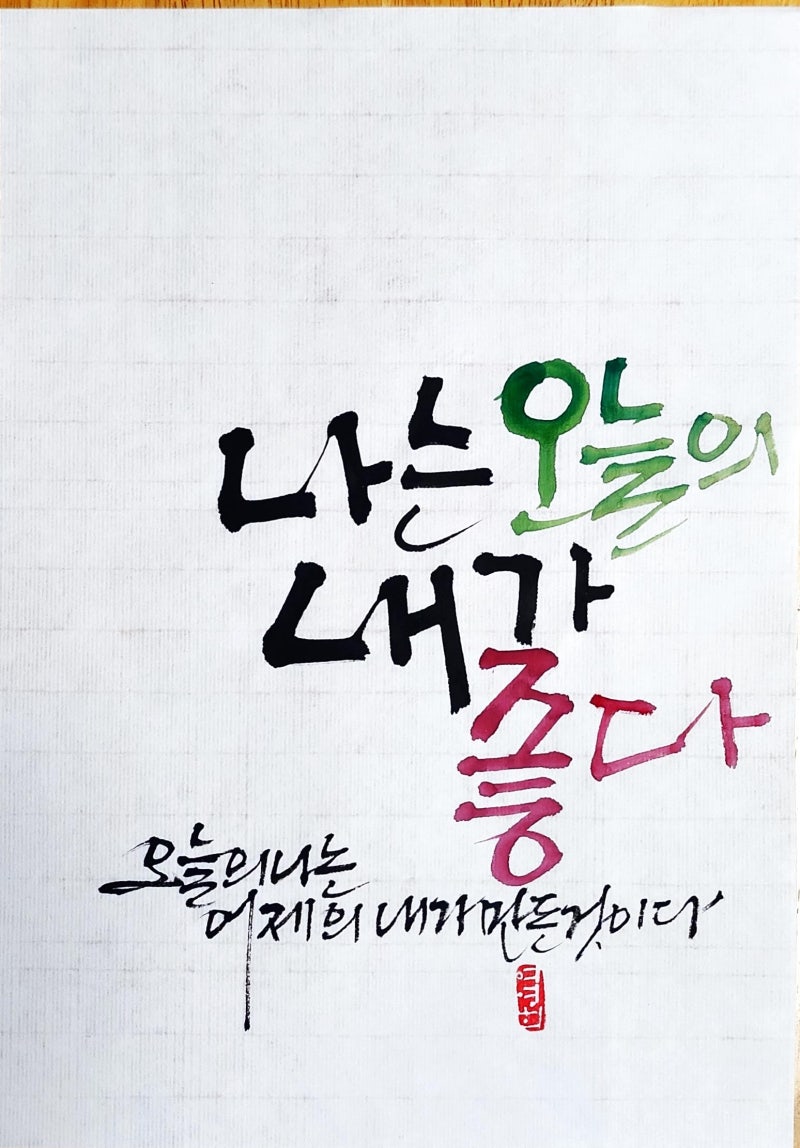 나는 오늘의
내가
좋다
오늘의 나는
어제의 내가 만든 것이다